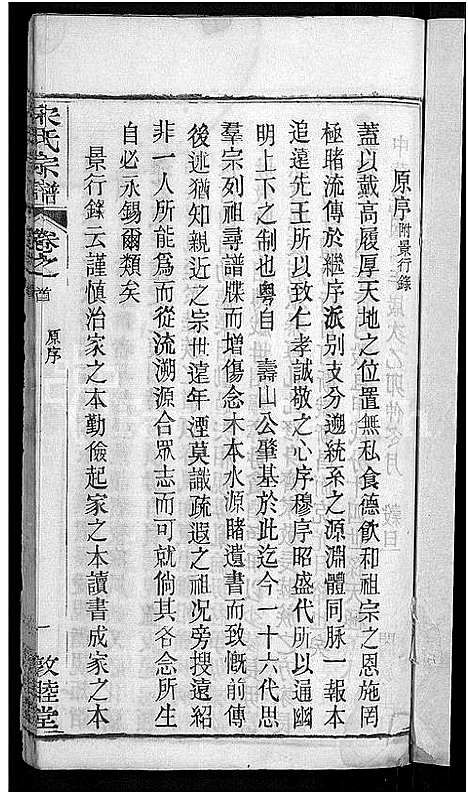 原序附景行錄
蓋以戴高履厚天地之位置無私食德飲和祖宗之恩施罔
極賭流傳於繼序派别支分邈統系之源淵體同脉一報本
追遠先王所以致仁孝誠敬之心序穆序昭盛代所以逼幽
明上下之制也粵自 壽山公肇基於此迄今一十六代思
羣宗列祖尋譜牒而增傷念木本水源賭遺書而致慨前傳
後述猶知親近之宗世遠年湮莫識疏遐之祖况旁搜遠紹
非一人所能為而從流溯源合眾志而可就倘其各念所生
自必永錫爾類矣
景行錄云謹慎治家之本勤儉起家之本讀書成家之本
宋氏宗譜 卷之首 原序 一 敦睦堂